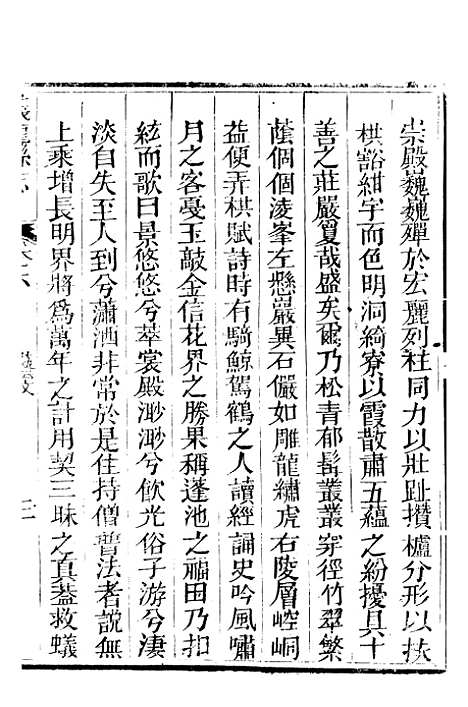 崇嚴巍巍殫於宏麗列柱同力以壯趾攢櫨分形以扶
栱豁紺宇而色明洞綺寮以霞散肅五蘊之紛擾具十
善之莊嚴夐哉盛矣爾乃松青郁髯叢叢穿徑竹翠繁
蔭個個淩峯左懸巖異石儼如雕龍繡虎右陵層崆峒
益便弄棋賦詩時有騎鯨駕鶴之人讀經誦史吟風嘯
月之客戞玉敲金信花界之勝果稱蓬池之福田乃扣
絃而歌曰景悠悠兮萃裳殿渺渺兮飮光俗子游兮淒
淡自失至人到兮蕭洒非常於是住持僧普法者說無
上乘增長明界將爲萬年之計用契三昧之真葢救蟻